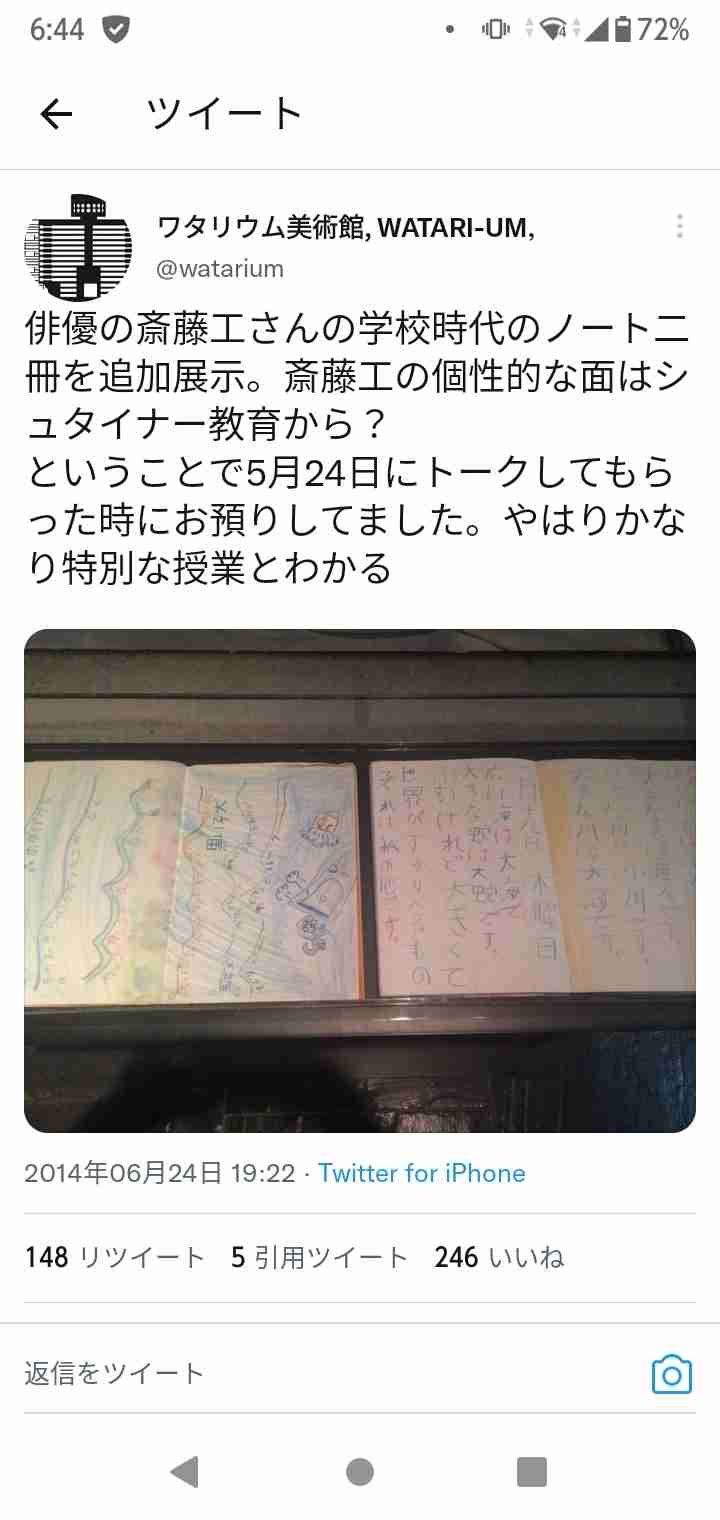 6:44
72%
ツイート
ワタリウム美術館, WATARI-UM,
@watarium
俳優の斎藤工さんの学校時代のノート二
冊を追加展示。斎藤工の個性的な面はシ
ュタイナー教育から？
ということで5月24日にトークしてもら
った時にお預りしてました。やはりかな
り特別な授業とわかる
木曜日
広い海は大きくて
世界がすっぽり
それは私の心です。
2014年06月24日 19:22 · Twitter for iPhone
148 リツイート 5 引用ツイート 246 いいね
返信をツイート